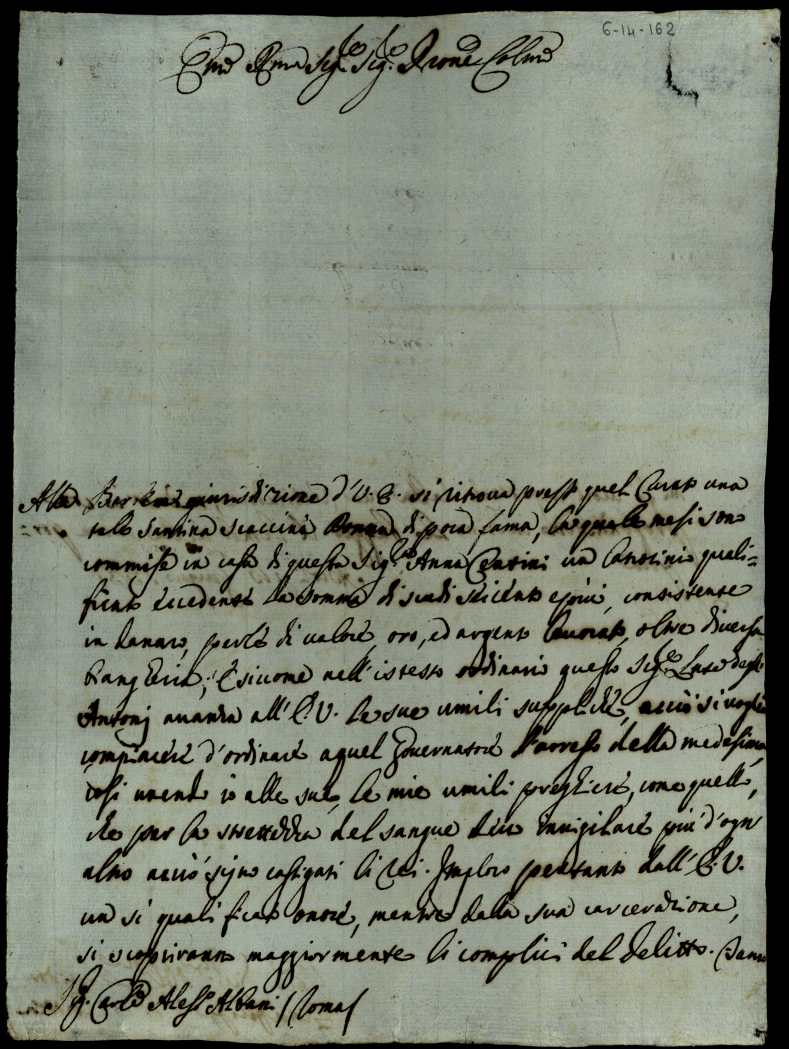 6-14-162
Em̃o Rm̃o Sig.re Sig.re Prone Colm̃o
Alla giurisdizione d'V. E. si ritrova presso quel Curato una
tale Santina Scaccini Donna di poca fama, la quale mesi sono
commise in casa di questa Sig.ra Anna Centini un latrocinio quali=
ficato eccedente la somma di scudi seicento e più, consistente
in danaro, perle di valore, oro, ed argento lavorato, oltre diversa
biangheria; E siccome nell'istesso ordinario questo Sig.re degli
Antonj avanza all'E. V. le sue umili suppliche, acciò si voglia
compiacere d'ordinare a quel Governatore l'arresto della medesima,
così unendo io alle sue, le mie umili preghiere, come quello,
che per la strettezza del sangue devo invigilare più d'ogn'
altro acciò sijno castigati li rei. Imploro pertanto dall'E. V.
un sì qualificato onore, mentre dalla sua carcerazione,
si scopriranno maggiormente li complici del delitto.
Sig. Card. Aless.o Albani / Roma /